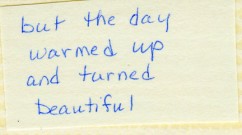 but the day
warmed up
and turned
beautiful